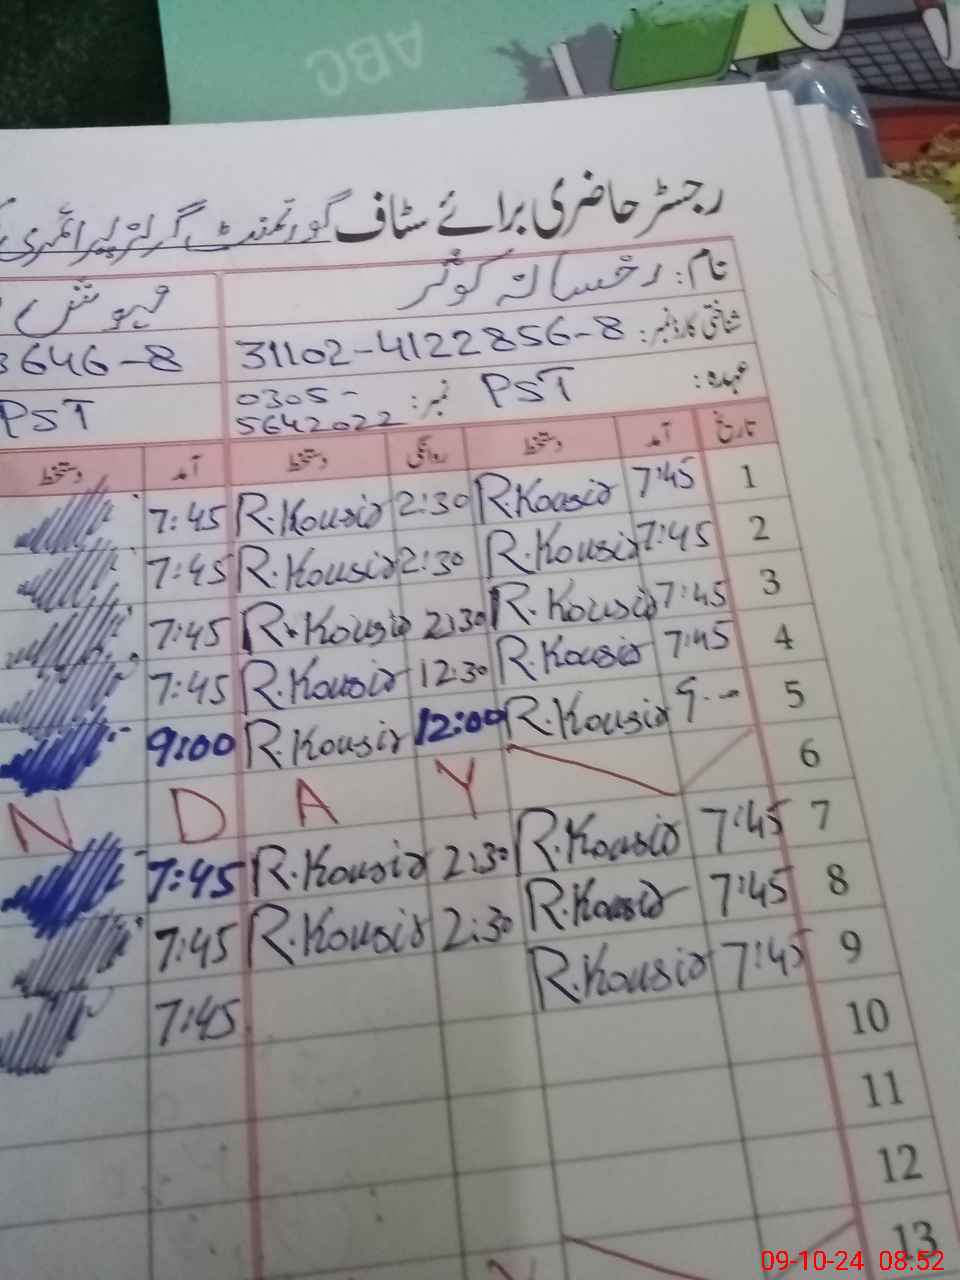 ABC
رجسٹر حاضری برائے سٹاف گورنمنٹ گرلز پرائمری
نام: رخسانہ کوثر مہوش
شناختی کارڈ نمبر: 31102-4122856-8 3646-8
عہدہ: PST نمبر: 0305-5642022 PST
تاریخ آمد دستخط روانگی دستخط آمد دستخط
1 7:45 R.Kousir 2:30 R.Kousir 7:45
2 7:45 R.Kousir 2:30 R.Kousir 7:45
3 7:45 R.Kousir 2:30 R.Kousir 7:45
4 7:45 R.Kousir 12:30 R.Kousir 7:45
5 9:-- R.Kousir 12:00 R.Kousir 9:00
6 N D A Y
7 7:45 R.Kousir 2:30 R.Kousir 7:45
8 7:45 R.Kousir 2:30 R.Kousir 7:45
9 7:45 R.Kousir 7:45
10
11
12
13
09-10-24 08:52